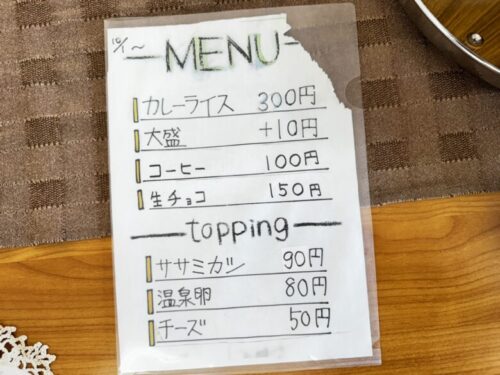 10/1〜
MENU
カレーライス 300円
大盛 +10円
コーヒー 100円
生チョコ 150円
topping
ササミカツ 90円
温泉卵 80円
チーズ 50円